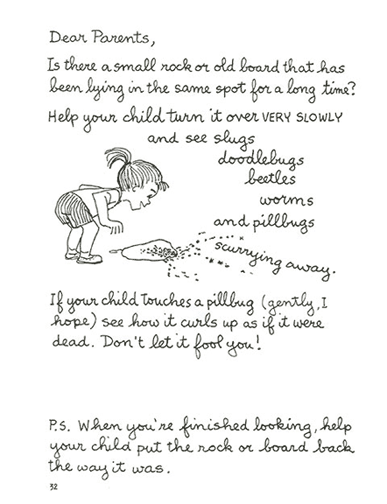 Dear Parents,
Is there a small rock or old board that has
been lying in the same spot for a long time?
Help your child turn it over VERY SLOWLY
and see slugs
doodlebugs
beetles
worms
and pillbugs
scurrying away.
If your child touches a pillbug (gently, I
hope) see how it curls up as if it were
dead. Don't let it fool you!
P.S. When you're finished looking, help
your child put the rock or board back
the way it was.
32